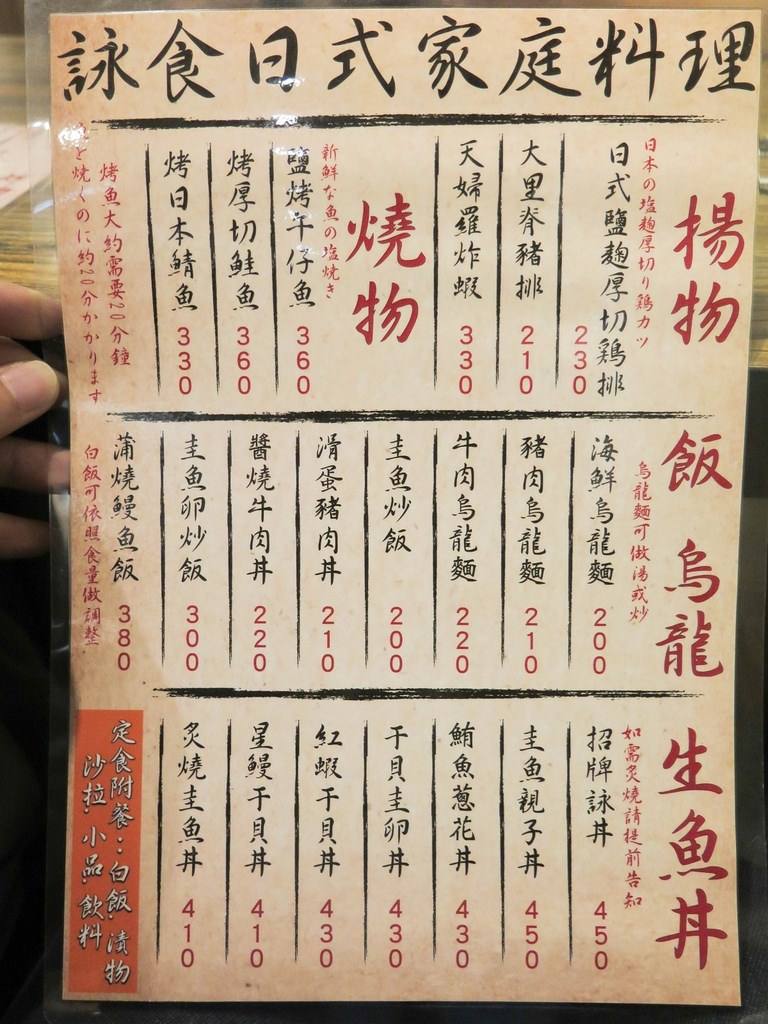 詠食日式家庭料理
揚物
日本の塩麹厚切り鶏カツ
日式鹽麴厚切鶏排 230
大里脊豬排 210
天婦羅炸蝦 330
燒物
新鮮な魚の塩焼き
鹽烤午仔魚 360
烤厚切鮭魚 360
烤日本鯖魚 330
烤魚大約需要20分鐘
と焼くのに約20分かかります
飯 烏龍
烏龍麵可做湯或炒
海鮮烏龍麵 200
豬肉烏龍麵 210
牛肉烏龍麵 220
圭魚炒飯 200
滑蛋豬肉丼 210
醬燒牛肉丼 220
圭魚卵炒飯 300
蒲燒鰻魚飯 380
白飯可依照食量做調整
生魚丼
如需炙燒請提前告知
招牌詠丼 450
圭魚親子丼 450
鮪魚蔥花丼 430
干貝圭卵丼 430
紅蝦干貝丼 430
星鰻干貝丼 410
炙燒圭魚丼 410
定食附餐：白飯 漬物
沙拉 小品 飲料